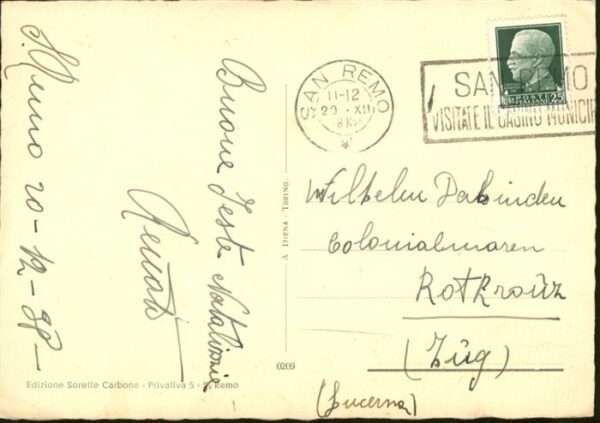 S. Remo 20-12-38-
Buone Feste Natalizie
Renato
SAN REMO
11-12
20 · XII
SAN REMO
VISITATE IL CASINO MUNICIP
POSTE
25
A. DUENA - TORINO
Wilhelm Dabinden
Colonialwaren
Rotkreuz
(Zùg)
(Lucerna)
0209
Edizione Sorelle Carbone - Privativa 5 - S. Remo